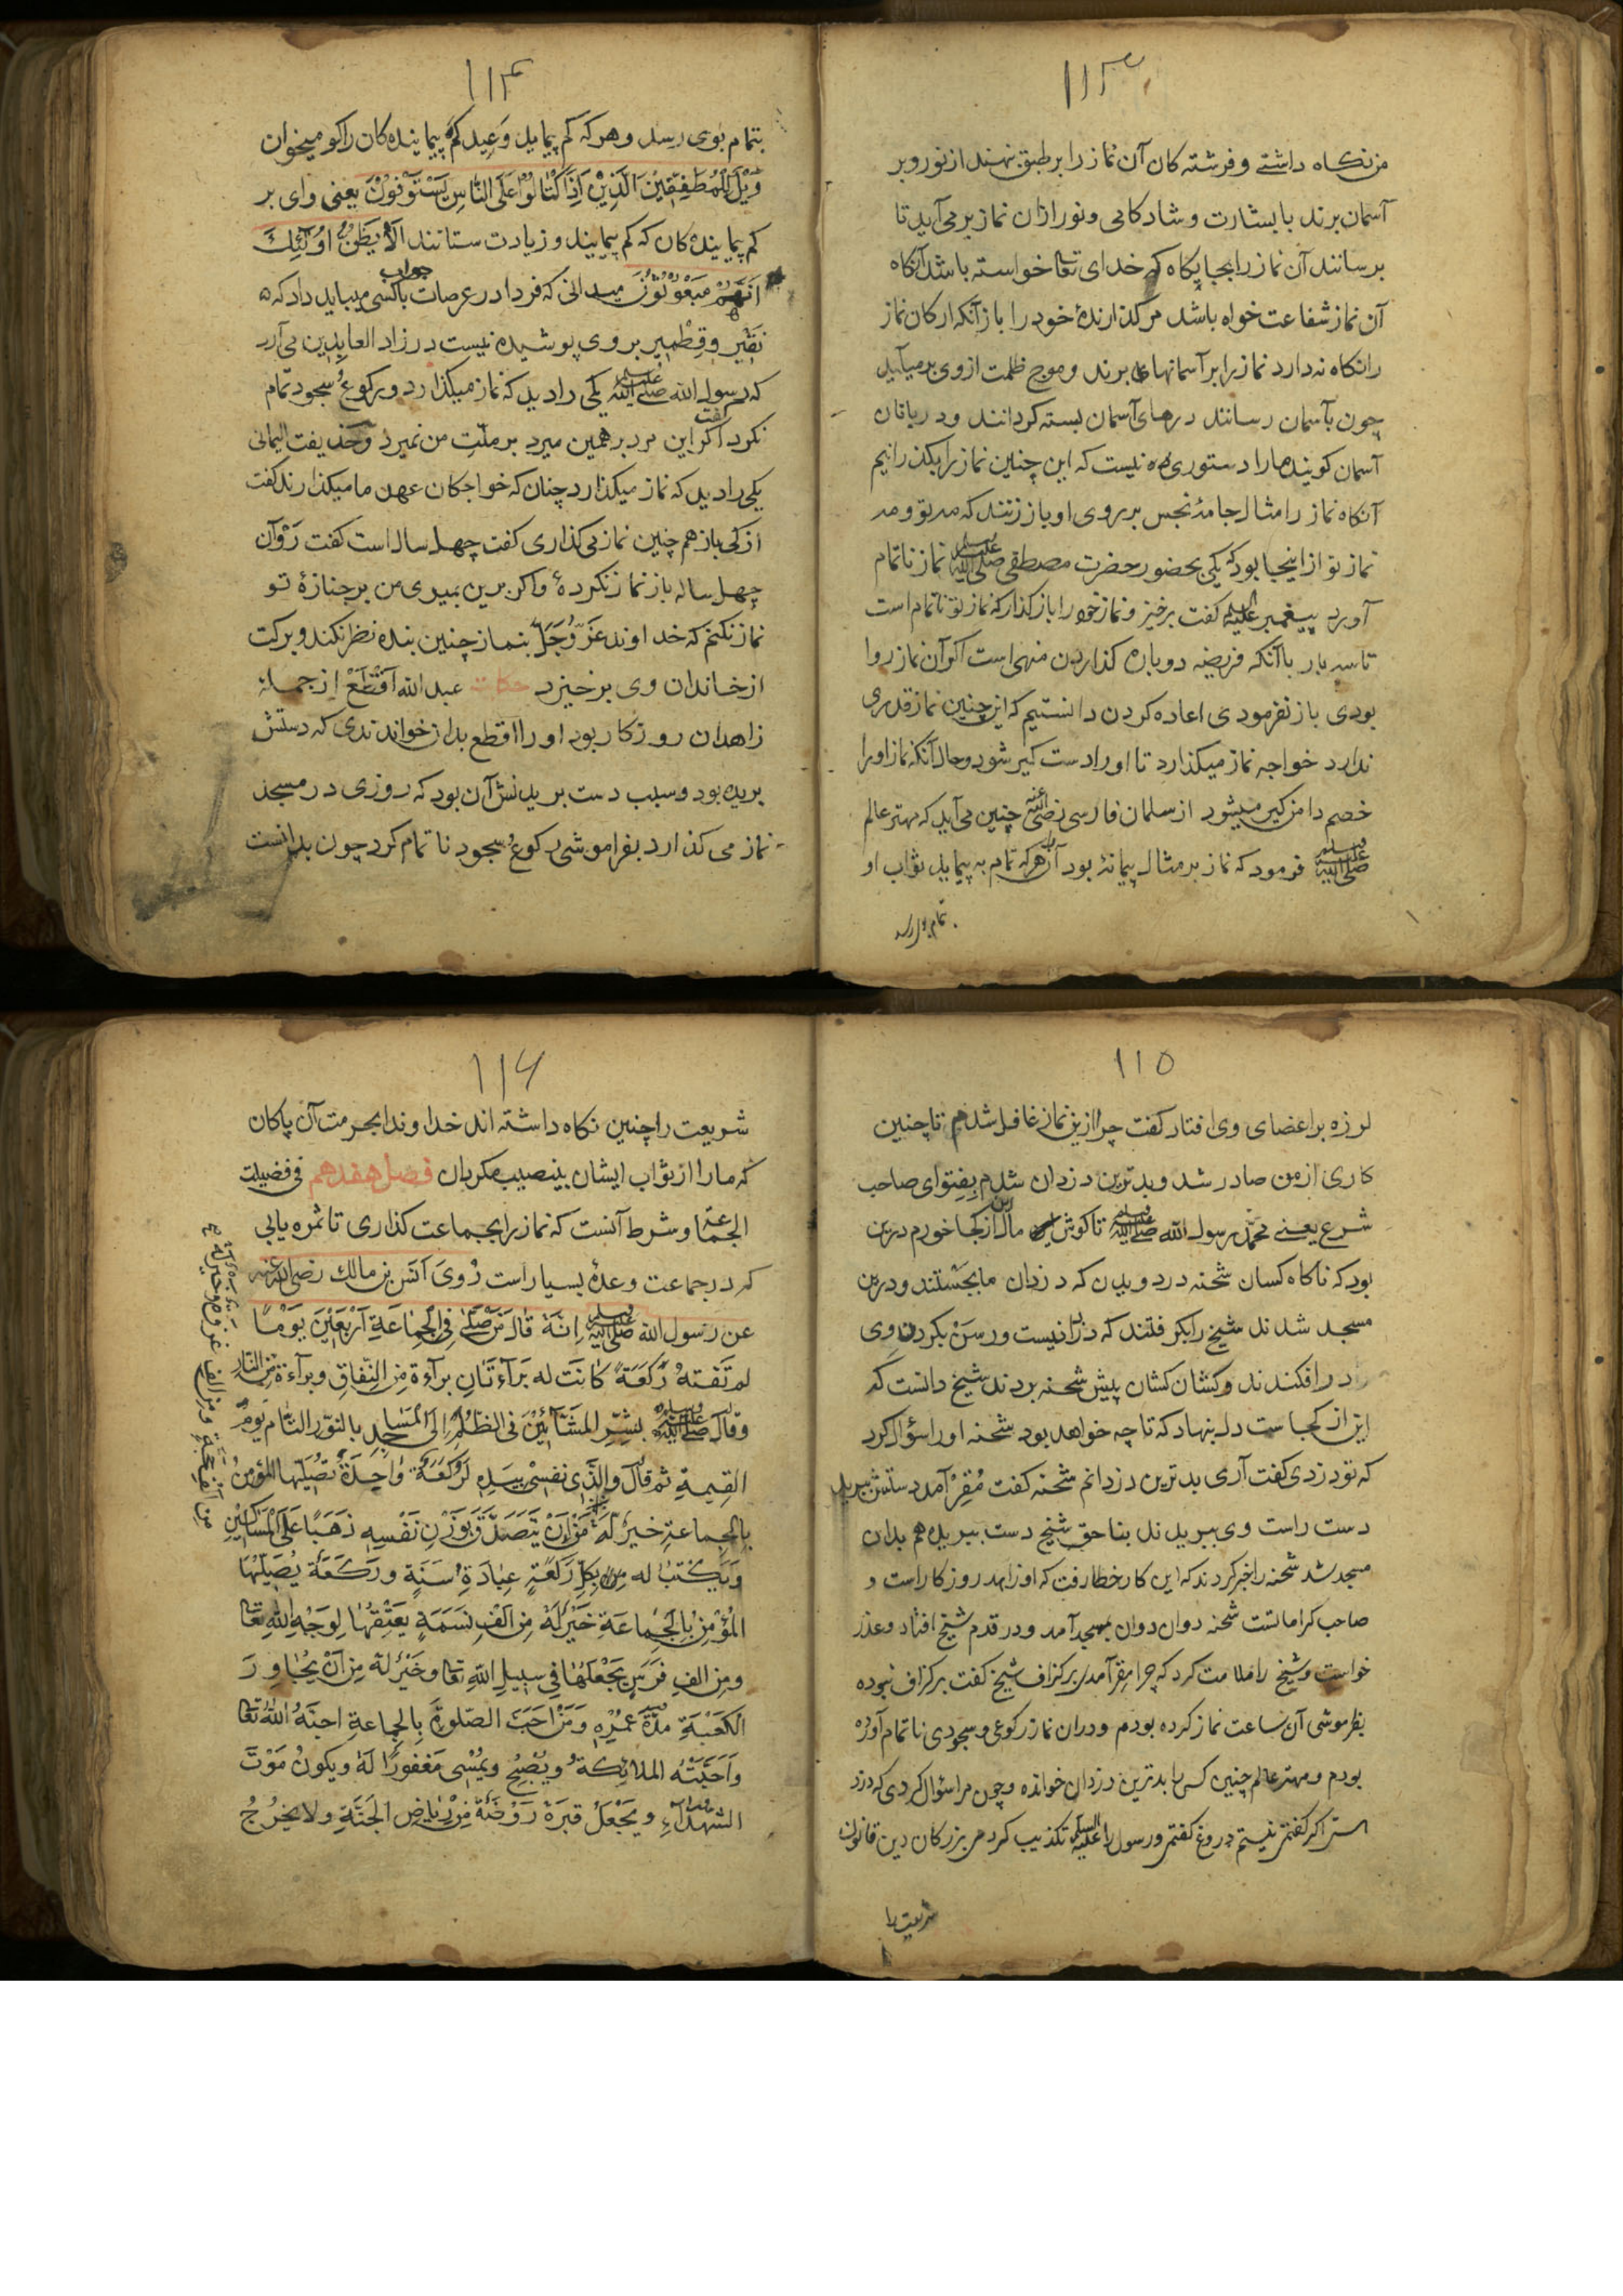 ۱۱۳
من نکاه داشتی و فرشته کان آن نماز را بر طبق نهند از نور و بر
آسمان برند با بشارت و شادکامی و نور ازان نماز بر می آید تا
برسانند آن نماز را بجایکاه که خدای تعا خواسته باشد آنکاه
آن نماز شفاعت خواه باشد مر کذارندهٔ خود را باز آنکه ارکان نماز
را نکاه ندارد نماز را بر آسمانها برند و موج ظلمت از وی بر میآید
چون بآسمان رسانند درهای آسمان بسته کردانند و دربانان
آسمان کویند مارا دستوری نیست که این چنین نماز را بکذرانیم
آنکاه نماز را مثال جامهٔ نجس بر روی او باز زنند که مه تو و مه
نماز تو از اینجا بود که یکی بحضور حضرت مصطفی صلی الله علیه وسلم نماز ناتمام
آورد پیغمبر علیه السلام کفت برخیز و نماز خود را باز کذار که نماز تو ناتمام است
تا سه بار با آنکه فریضه دوباره کذاردن منهی است اکر آن نماز روا
بودی باز نفرمودی اعاده کردن دانستیم که این چنین نماز قدری
ندارد خواجه نماز میکذارد تا او را دست کیر شود و حال آنکه نماز او را
خصم دامن کیر میشود از سلمان فارسی رضی الله عنه چنین می آید که مهتر عالم
صلی الله علیه وسلم فرمود که نماز بر مثال پیمانهٔ بود آن هر که تمام به پیماید ثواب او
تمام بوی رسد
۱۱۴
بتمام بوی رسد و هر که کم پیماید وعید کم پیماینده کان را کو میخوان
وَيْلٌ لِلْمُطَفِّفِينَ الَّذِينَ إِذَا اكْتَالُوا عَلَى النَّاسِ يَسْتَوْفُونَ یعنی وای بر
کم پیماینده کان که کم پیمایند و زیادت ستانند اَلَا يَظُنُّ اُولٰئِكَ
اَنَّهُمْ مَبْعُوثُونَ میدانی که فردا در عرصات باکسی جواب میباید داد که
نقیر و قطمیر بر وی پوشیده نیست در زاد العابدین می آرد
که رسول الله صلی الله علیه وسلم یکی را دید که نماز میکذارد و رکوع و سجود تمام
نکرد کفت اکر این مرد برهمین میرد بر ملت من نمیرد و حذیفت الیمانی
یکی را دید که نماز میکذارد چنان که خواجکان عهد ما میکذارند کفت
از کی باز هم چنین نماز می کذاری کفت چهل سال است کفت رَوْ آن
چهل ساله باز نماز نکردهٔ و اکر برین بمیری من بر جنازهٔ تو
نماز نکنم که خداوند عَزَّ وَجَلَّ بنماز چنین بنده نظر نکند و برکت
از خاندان وی برخیزد حکات عبد الله اقطع از جمله
زاهدان روزکار بود او را اقطع بدان خواندندی که دستش
بریده بود و سبب دست بریدنش آن بود که روزی در مسجد
نماز می کذارد بفراموشی رکوع و سجود ناتمام کرد چون بدانست
۱۱۵
لرزه بر اعضای وی افتاد کفت چرا ازین نماز غافل شدم تا چنین
کاری از من صادر شد و بدترین دزدان شدم بفتوای صاحب
شرع یعنی محمد رسول الله صلی الله علیه وسلم تا کوش این مال از کجا خورم درین
بود که ناکاه کسان شحنه در دویدن که دزدان ما بجستند و درین
مسجد شدند شیخ را بکرفتند که دزد اینست و رسن بکردن وی
در افکندند و کشان کشان پیش شحنه بردند شیخ دانست که
این از کجاست دل بنهاد که تا چه خواهد بود شحنه او را سؤال کرد
که تو دزدی کفت آری بدترین دزدانم شحنه کفت مُقِرْ آمد دستش ببرید
دست راست وی ببریدند بناحق شیخ دست ببریده هم بدان
مسجد شد شحنه را خبر کردند که این کار خطا رفت که او زاهد روزکار است و
صاحب کراماتست شحنه دوان دوان بمسجد آمد و در قدم شیخ افتاد و عذر
خواست و شیخ را ملامت کرد که چرا مقر آمدی بر کزاف شیخ کفت بر کزاف نبوده
بفرموشی آن ساعت نماز کرده بودم و دران نماز رکوعی و سجودی ناتمام آورده
بودم و مهتر عالم چنین کس را بدترین دزدان خوانده و چون مرا سؤال کردی که دزد
اکر کفتم نیستم دروغ کفتم و رسول را علیه السلام تکذیب کردم بزرکان دین قانون
شریعت را
۱۱۶
شریعت را چنین نکاه داشته اند خداوندا بحرمت آن پاکان
که ما را از ثواب ایشان بینصیب مکردان فصل هفدهم فی فضیلت
الجماعة و شرط آنست که نماز را بجماعت کذاری تا ثمره یابی
که در جماعت وعدهٔ بسیار است رُوِیَ اَنَس بن مالك رضی الله عنه
عن رسول الله صلی الله علیه وسلم اِنَّهُ قَالَ مَنْ صَلَّى فِي الْجَمَاعَةِ اَرْبَعِينَ يَوْمًا
لم تَفُتْهُ رَكْعَةٌ كَانَت له بَرَآءَتَانِ برآءة مِنَ النِّفَاقِ وبرآءة مِنَ النَّارِ
وقال صلی الله علیه وسلم بَشِّرِ المَشَّائِينَ فى الظُلَمِ اِلَى المَسَاجِدِ بالنُّور التَّام يَوْمَ
القيمةِ ثم قالَ والَّذِى نَفْسِى بِيَدِهِ لَرَكْعَةٌ وَاحِدَةٌ يُصَلِّيهَا المُؤْمِنُ
بِالْجَمَاعَةِ خَيْرٌ لَهُ مِنْ اَنْ يَتَصَدَّقَ بِوَزْنِ نَفْسِهِ ذَهَبًا عَلَى الْمَسَاكِينِ
وَيُكْتَبُ له بِكُلِّ رَكْعَةٍ عِبَادَةُ سَنَةٍ وَرَكْعَةٌ يُصَلِّيهَا
المُؤْمِنُ بِالْجَمَاعَةِ خَيْرٌ لَهُ مِنْ اَلْفِ نَسَمَةٍ يَعْتِقُهَا لِوَجْهِ اللّٰهِ تَعَا
ومِنْ الفِ فَرَسٍ يَجْعَلُهَا فِي سَبِيلِ اللّٰهِ تَعَا وَخَيْرٌ لَهُ مِنْ اَنْ يُجَاوِرَ
الكَعْبَةَ مُدَّةَ عُمْرِهِ وَمَنْ اَحَبَّ الصَّلٰوةَ بِالْجَمَاعَةِ احبَّهُ اللّٰهُ تَعَا
وَاَحَبَّتْهُ الملائِكَةُ وَيُصْبِحُ ويُمْسِى مَغْفُورًا لَهُ ويكونُ مَوْتَ
الشُّهَدَاءِ ويَجْعَلُ قَبْرَهُ رَوْضَةً مِنْ رِيَاضِ الجَنَّةِ ولا يَخْرُجُ